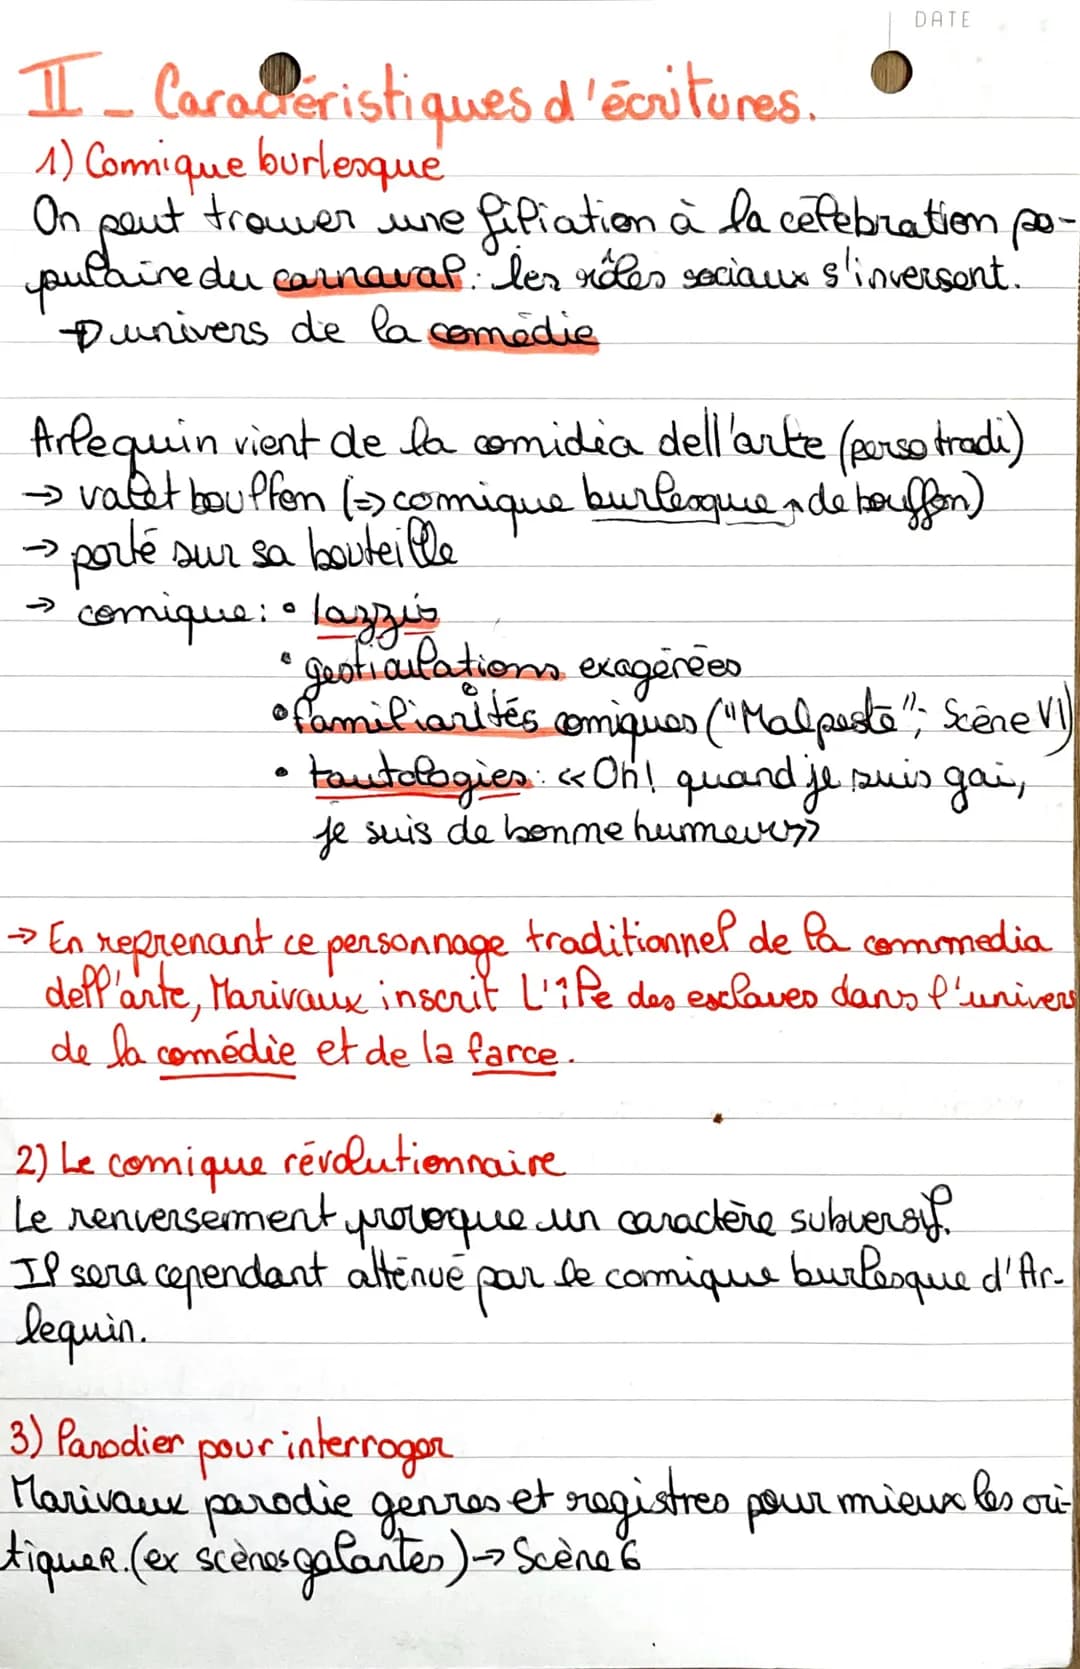 DATE
II - Caractéristiques d'écritures.
1) Comique burlesque
On peut trouver une filiation à la célébration po-
pulaire du carnaval : les rôles sociaux s'inversent.
→ univers de la comédie
Arlequin vient de la comidéa dell'arte (perso tradi)
→ valet bouffon (=> comique burlesque, de bouffon)
→ porté sur sa bouteille
→ comique : • lazzis
• gesticulations exagérées
• familiarités comiques ("Malpeste"; Scène VI)
• tautologies : «Oh! quand je suis gai,
je suis de bonne humeur»
→ En reprenant ce personnage traditionnel de la commedia
dell'arte, Marivaux inscrit L'île des esclaves dans l'univers
de la comédie et de la farce.
2) Le comique révolutionnaire
Le renversement provoque un caractère subversif.
Il sera cependant atténué par le comique burlesque d'Ar-
lequin.
3) Parodier pour interroger
Marivaux parodie genres et registres pour mieux les cri-
tiquer. (ex scènes galantes) → Scène 6